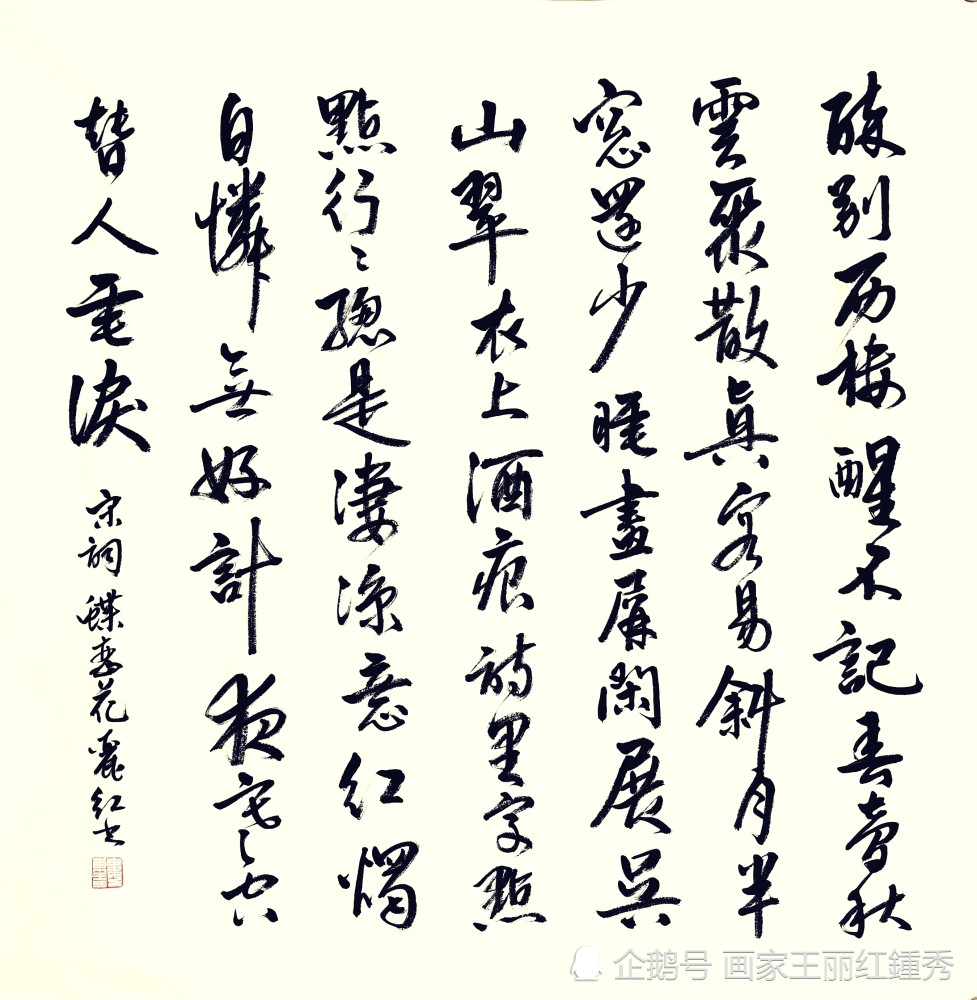 醉別西樓醒不記春夢秋
雲聚散真容易斜月半
窗還少睡畫屏閑展吳
山翠衣上酒痕詩里字點
點行〻總是淒涼意紅燭
自憐無好計夜寒空
替人垂淚
宋詞蝶恋花麗红书
企鹅号 画家王丽红鍾秀